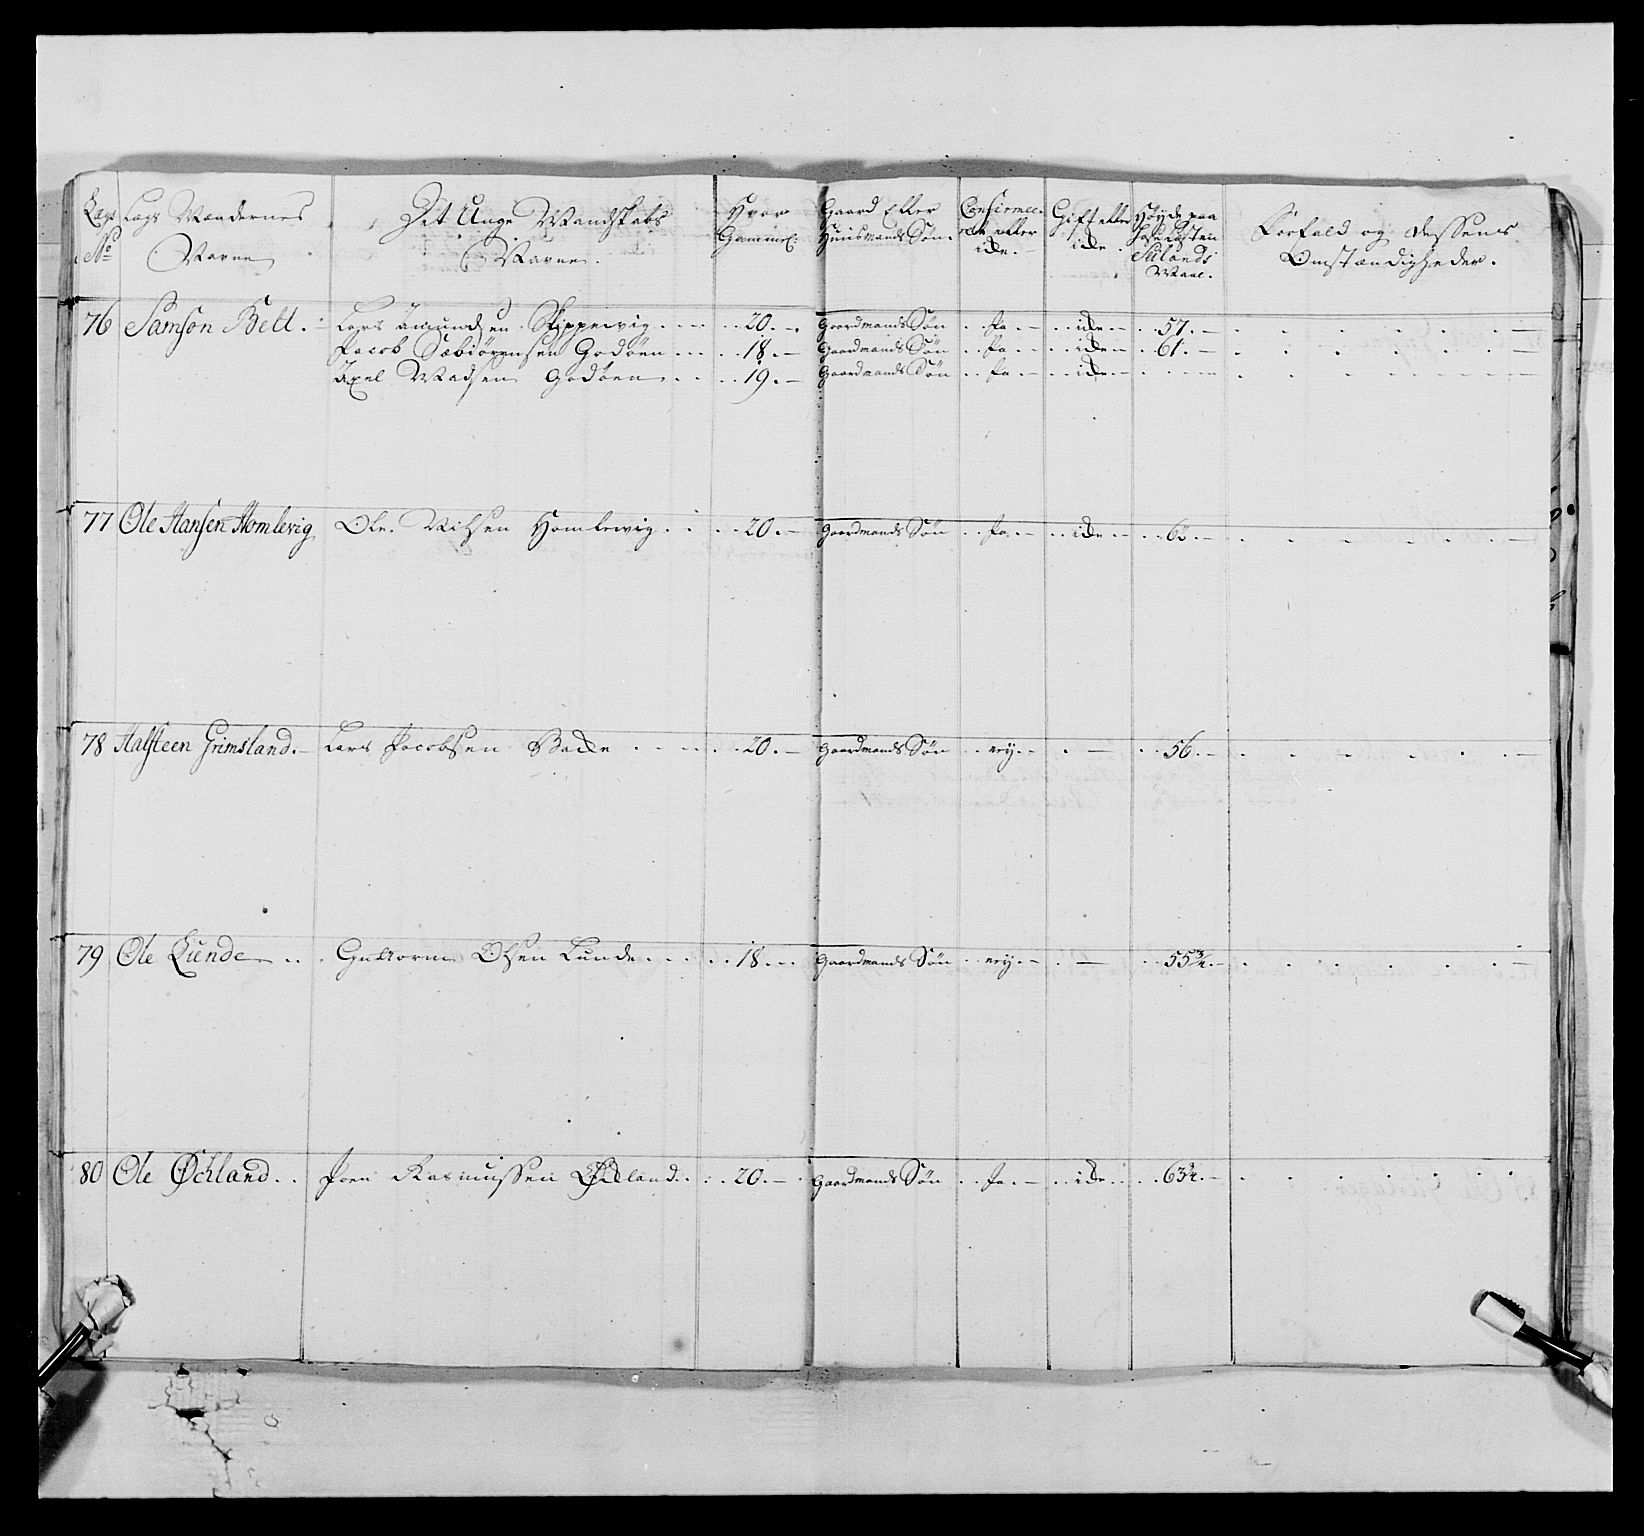 Lægs No
Lægs Mændernes Navne
Det Unge Mandskabs Navne.
Hvor Gammel:
Gaard Eller Huusmands Søn.
Confirmeerede eller icke.
Gift eller icke.
Høyde paa
Sælands Maal.
Forfald og dessens Omstændigheder.
76 Samson Bett. Lars Amundsen Skippervig. 20. Gaardmands Søn Ja icke 57.
Jacob Søbiørensen Godøen 18. Gaardmands Søn Ja icke 61.
Axel Madsen Godøen 19. Gaardmands Søn Ja icke
77 Ole Hansen Homlevig Ole Nilsen Homlevig. 20. Gaardmands Søn Ja icke 62.
78 Halsteen Grimsland. Lars Jacobsen Backe 20. Gaardmands Søn ney. — 56.
79 Ole Lunde Guttorm Olsen Lunde. 18. Gaardmands Søn ney. — 55 3/4.
80 Ole Øchland. Joen Rasmussen Øckland. 20. Gaardmands Søn Ja icke 63 3/4.